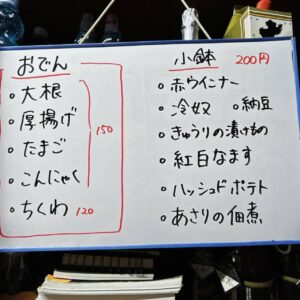 おでん
・大根
・厚揚げ
・たまご
・こんにゃく
150
・ちくわ 120
小鉢 200円
・赤ウインナー
・冷奴 ・納豆
・きゅうりの漬けもの
・紅白なます
・ハッシュドポテト
・あさりの佃煮